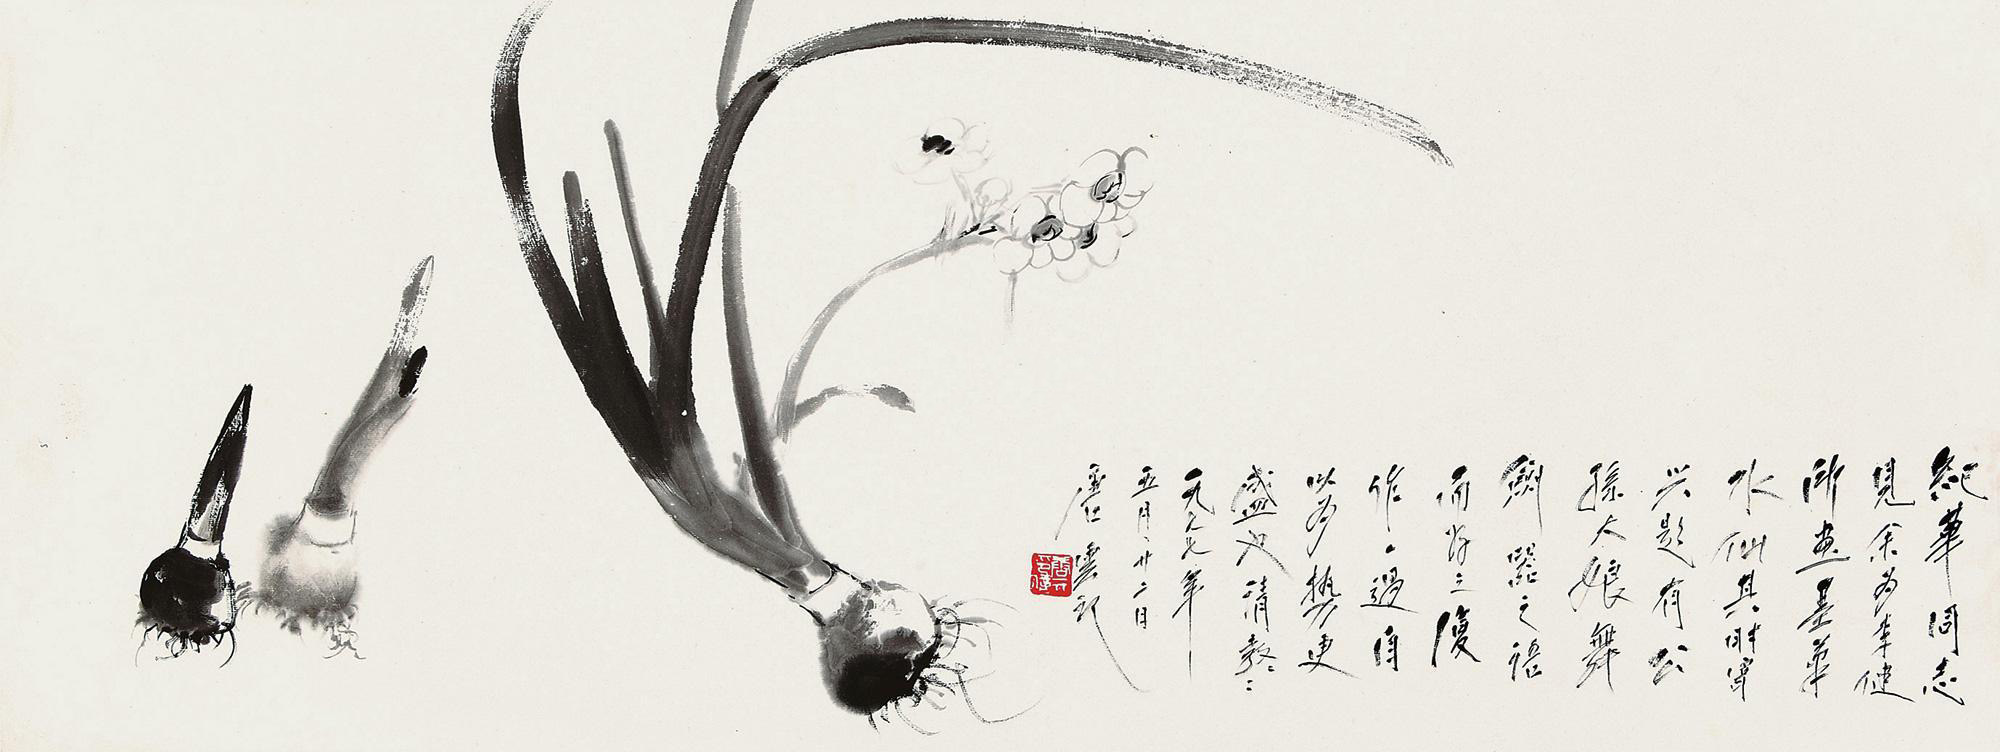 紀華同志
見余為李健
所画墨華
水仙其時
兴題有公
孫大娘舞
劍器之語
而 三復
作、過自
以为勢更
盛也请教
一九七九年
五月廿二日
唐雲記